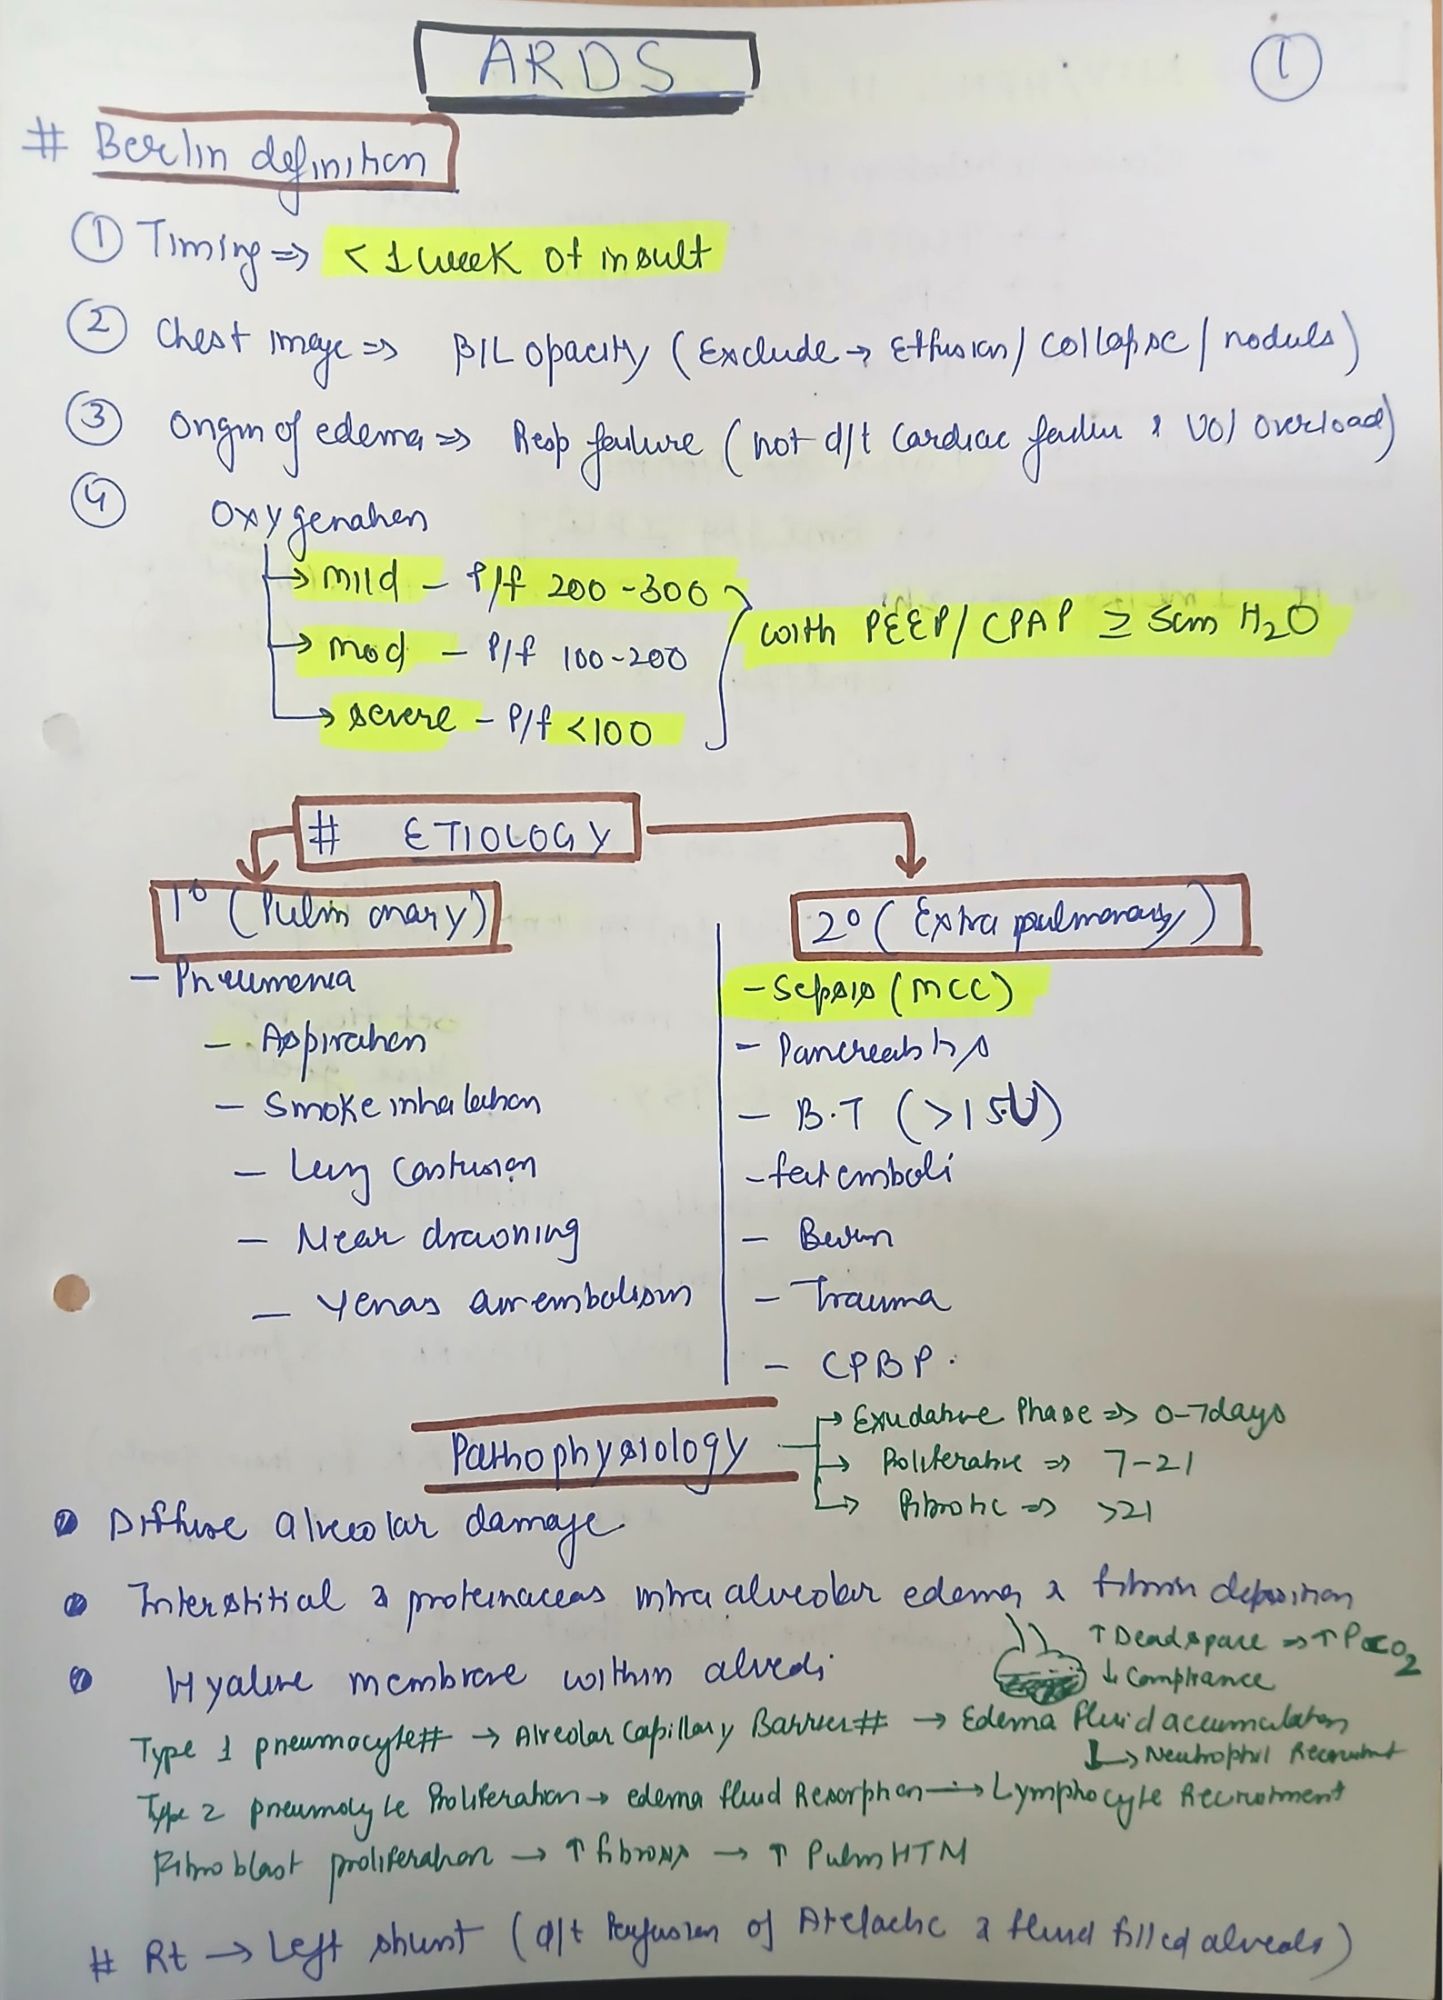 ARDS
①
# Berlin definition
① Timing ⇒ < 1 week of insult
② Chest image ⇒ B/L opacity (Exclude → Effusion/ collapse / noduls)
③ Origin of edema ⇒ Resp failure (not d/t Cardiac failur & Vol overload)
④ Oxygenation
→ mild - P/f 200-300
→ mod - P/f 100-200
→ severe - P/f <100
with PEEP/ CPAP ≥ 5cm H₂O
# ETIOLOGY
1° (Pulmonary)
- Pneumonia
- Aspiration
- Smoke inhalation
- Lung Contusion
- Near drowning
- Venous air embolism
2° (Extra pulmonary)
- Sepsis (MCC)
- Pancreatitis
- B.T (>15U)
- fat emboli
- Burn
- Trauma
- CPBP.
Pathophysiology
→ Exudative Phase ⇒ 0-7days
→ Proliferative ⇒ 7-21
→ Fibrotic ⇒ >21
• Diffuse alveolar damage
• Interstitial & proteinaceas intra alveolar edema & fibrin deposition
• Hyaline membrane within alveoli
↑ Dead space ⇒ ↑ PaCO₂
↓ Compliance
Type 1 pneumocyte# → Alveolar Capillary Barrier# → Edema fluid accumulation
↳ Neutrophil Recruitmt
Type 2 pneumocyte Proliferation → edema fluid Resorption → Lymphocyte Recruitment
Fibroblast proliferation → ↑ fibrosis → ↑ Pulm HTN
# Rt → Left shunt (d/t Perfusion of Atelactic & fluid filled alveols)